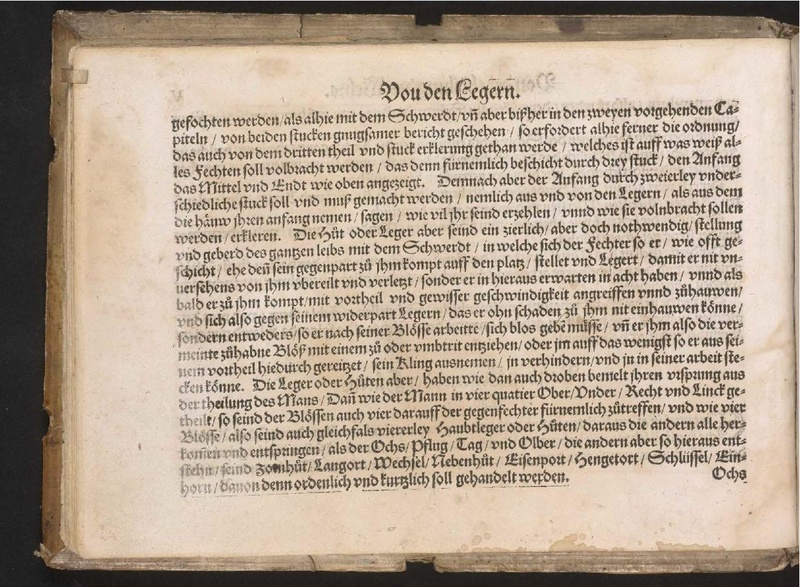 Von den Legern.
gefochten werden/als alhie mit dem Schwerdt/vñ aber bißher in den zweyen vorgehenden Ca-
piteln/von beiden stucken gnugsamer bericht geschehen/so erfordert alhie ferner die ordnung/
das auch von dem dritten theil vnd stuck erklerung gethan werde/welches ist auff was weiß al-
les Fechten soll volbracht werden/das denn fürnemlich beschicht durch drey stuck/den Anfang
das Mittel vnd Endt wie oben angezeigt. Demnach aber der Anfang durch zweierley vnder-
schiedliche stuck soll vnd muß gemacht werden/nemlich aus vnd von den Legern/als aus dem
die häuw jhren anfang nemen/sagen/wie vil jhr seind erzehlen/vnnd wie sie volnbracht sollen
werden/erkleren. Die Hüt oder Leger aber seind ein zierlich/aber doch nothwendig/stellung
vnd geberd des gantzen leibs mit dem Schwerdt/in welche sich der Fechter so er/wie offt ge-
schicht/ehe deñ sein gegenpart zů jhm kompt auff den platz/stellet vnd Legert/damit er nit vn-
uersehens von jhm vbereilt vnd verletzt/sonder er in hieraus erwarten in acht haben/vnnd als
bald er zů jhm kompt/mit vortheil vnd gewisser geschwindigkeit angreiffen vnnd zůhauwen/
vnd sich also gegen seinem widerpart Legern/das er ohn schaden zů jhm nit einhauwen könne/
sondern entweders/so er nach seiner Blösse arbeitte/sich blos gebē müsse/vñ er jhm also die ver-
meinte zůhabne Blöß mit einem zů oder vmbtrit entziehen/oder jm auff das wenigst so er aus sei-
nem vortheil hiedurch gereitzet/sein Kling ausnemen/jn verhindern/vnd jn in seiner arbeit ste-
cken könne. Die Leger oder Hüten aber/haben wie dan auch droben bemelt jhren vrsprung aus
der theilung des Mans/Dañ wie der Mann in vier quatier Ober/Vnder/Recht vnd Linck ge-
theilt/so seind der Blössen auch vier darauff der gegenfechter fürnemlich zůtreffen/vnd wie vier
Blösse/also seind auch gleichfals viererley Haubtleger oder Hüten/daraus die andern alle her-
komēn vnd entspringen/als der Ochs/Pflug/Tag/vnd Olber/die andern aber so hieraus ent-
stehn/seind Zornhůt/Langort/Wechsel/Nebenhůt/Eisenport/Hengetort/Schlüssel/Ein-
horn/dauon denn ordenlich vnd kurtzlich soll gehandelt werden.
Ochs